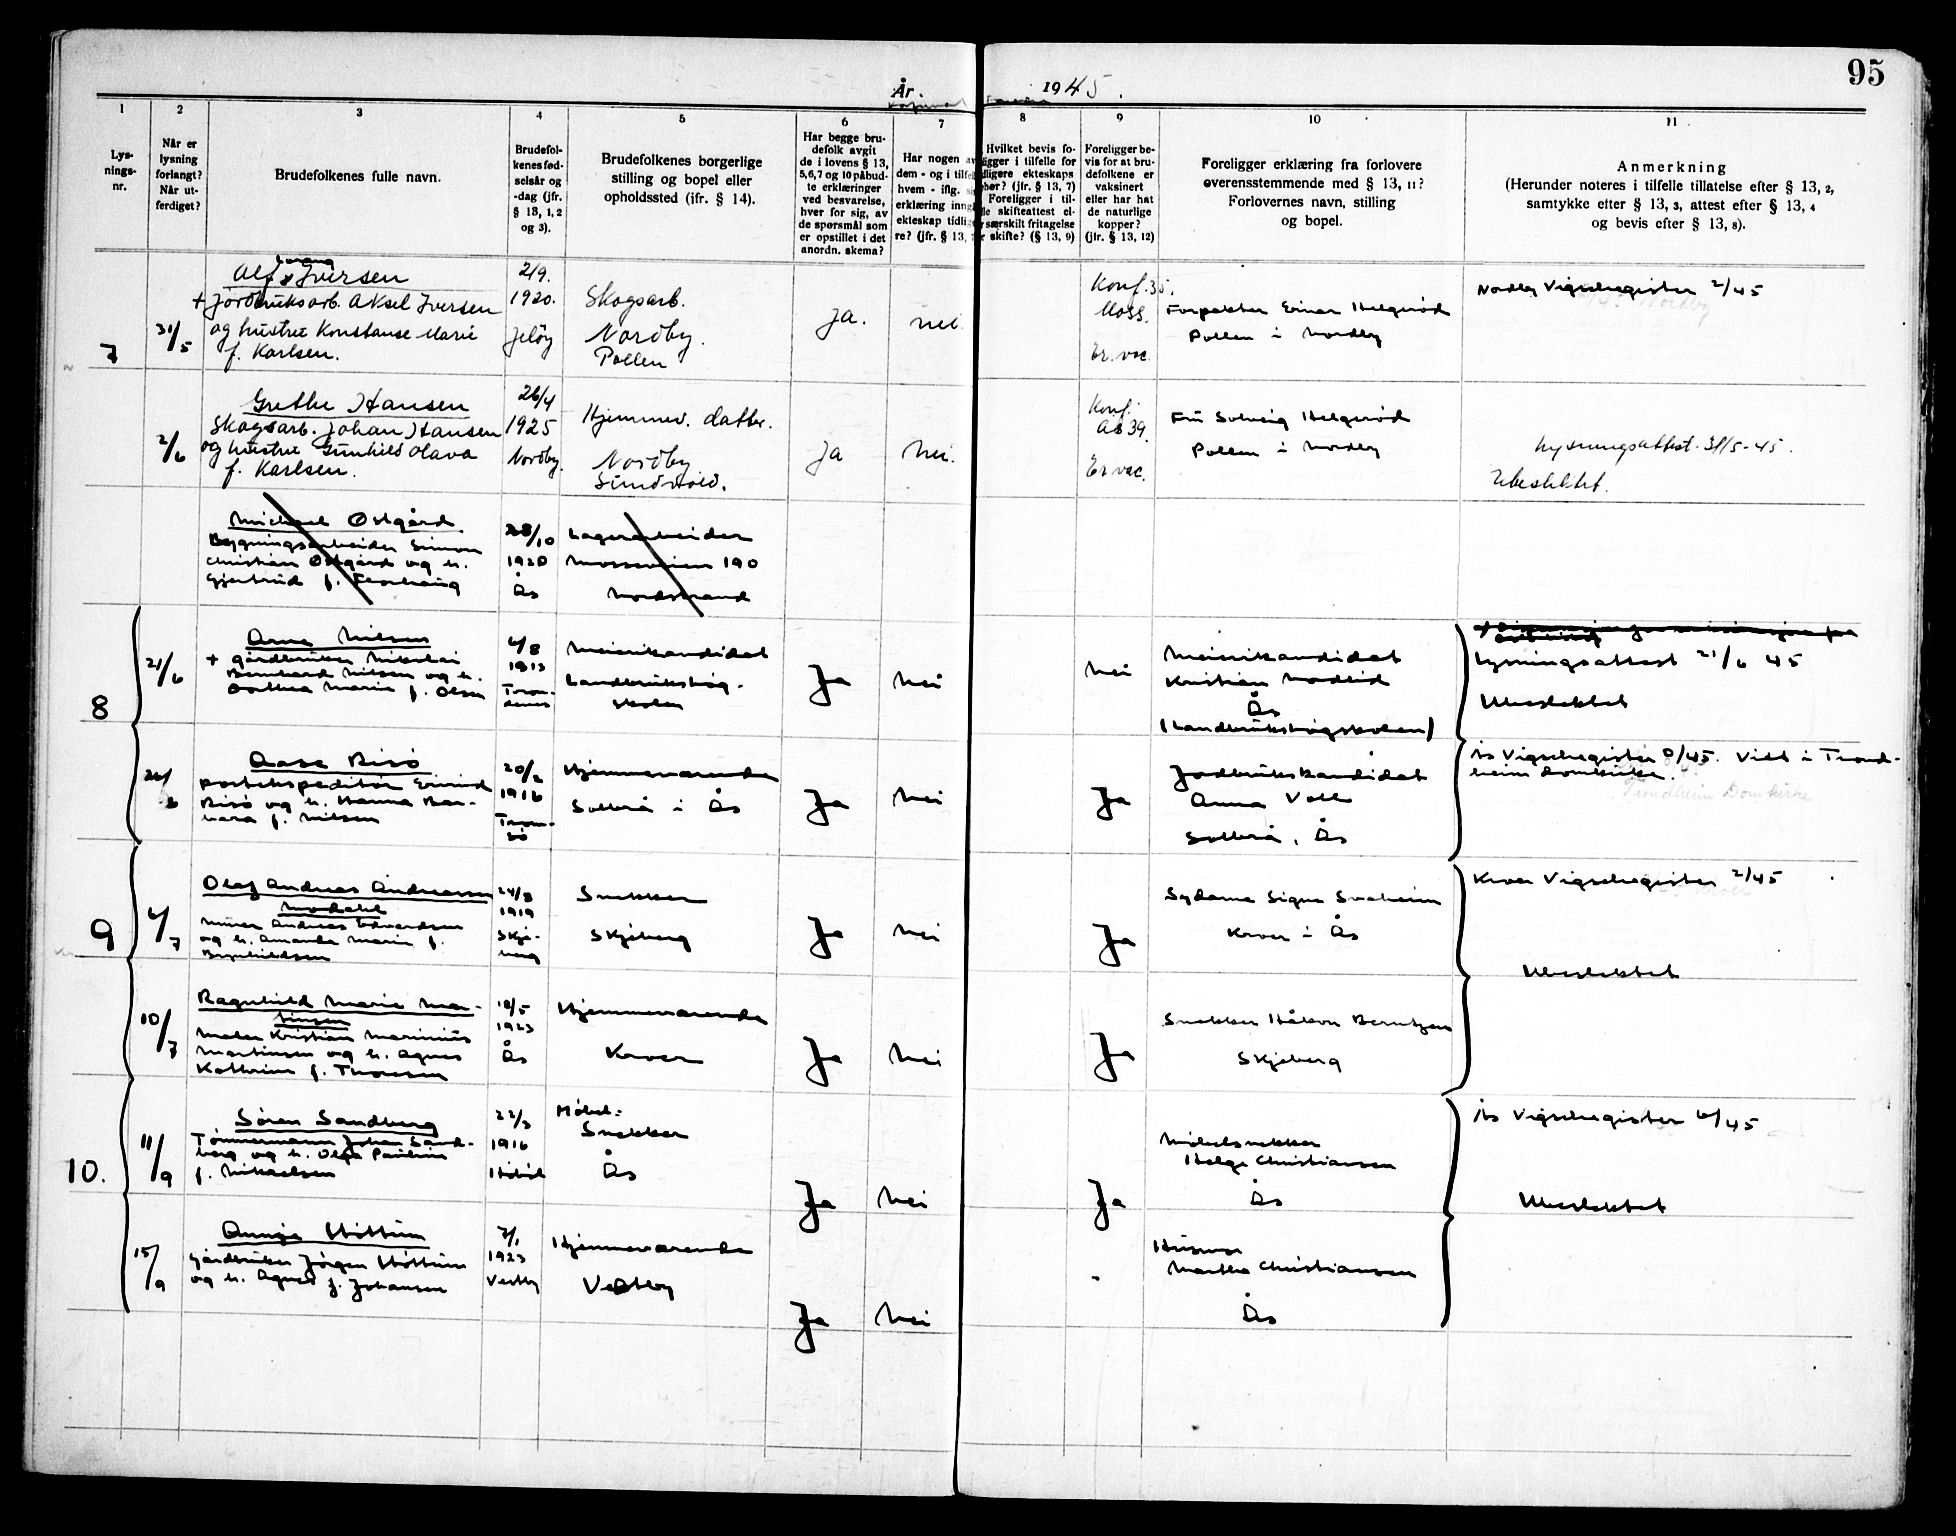 95
År. 1945.
1 2 3 4 5 6 7 8 9 10 11
Lys-
nings-
nr.
Når er
lysning
forlangt?
Når ut-
ferdiget?
Brudefolkenes fulle navn.
Brudefol-
kenes fød-
selsår og
-dag (jfr.
§ 13, 1, 2
og 3).
Brudefolkenes borgerlige
stilling og bopel eller
opholdssted (jfr. § 14).
Har begge bru-
defolk avgit
de i lovens § 13,
5, 6, 7 og 10 påbud-
te erklæringer
ved besvarelse,
hver for sig, av
de spørsmål som
er opstillet i det
anordn. skema?
Har nogen av
dem - og i tilfel
hvem - iflg. s
erklæring inng
ekteskap tidlig
re? (jfr. § 13,
Hvilket bevis fo-
ligger i tilfelle for
dligere ekteskaps
hør? (jfr. § 13, 7)
Foreligger i til-
le skifteattest el-
r særskilt fritagelse
r skifte? (§ 13, 9)
Foreligger be-
vis for at bru-
defolkene er
vaksinert
eller har hat
de naturlige
kopper?
(jfr. § 13, 12)
Foreligger erklæring fra forlovere
overensstemmende med § 13, 11?
Forlovernes navn, stilling
og bopel.
Anmerkning
(Herunder noteres i tilfelle tillatelse efter § 13, 2,
samtykke efter § 13, 3, attest efter § 13, 4
og bevis efter § 13, 8).
7
31/5
Alf Iversen
+ jordbruksarb. Aksel Iversen
og hustru Konstanse Marie
f. Karlsen.
2/9.
1920.
Jeløy
Skogsarb.
Nordby.
Pollen
Ja.
nei.
Konf. 35.
Moss.
Er. vac.
Forpakter Einar Helgerød
Pollen i Nordby
Nordby Vigselregister 2/45
2/6
Grethe Hansen
Skogsarb. Johan Hansen
og hustru Gunhild Olava
f. Karlsen.
26/4
1925
Nordby.
Hjemmev. datter.
Nordby
Ja
Nei.
Konf.
Ås 39.
Er vac.
Fru Solveig Helgerød
Pollen i Nordby
Lysningsattest 31/5-45.
Ubeslektet.
Michael Østgård
Bygningsarbeider Simon
Christian Østgård og h.
Gjertrud f.
28/10
1920
Ås
Lagerarbeider
Mosseveien 190
Nordstrand
8
21/6
Arne Nilsen
+ gårdbruker Nikolai
Bernhard Nilsen og h.
Dorthea Marie f. Olsen
4/8
1913
Tron-
denes
Meierikandidat
Landbrukshøg-
skolen
Ja
Nei
Nei
Meierikandidat
Kristian Nordlid
Ås
(Landbrukshøgskolen)
Lysningsattest 21/6 45
Ubeslektet
Aase Risø
postekspeditør Eivind
Risø og h. Hanna Bar-
bara f. Nilsen
20/2
1916
Trom-
sø
Hjemmeværende
Solberg i Ås
Ja
Nei
Ja
Jordbrukskandidat
Anna Voll
Solberg, Ås
Ås Vigselregister 8/45. Viet i Trond-
heim domkirke.
Trondheim Domkirke
9
4/7
Olaf Andreas Andreassen
Mordahl
murer Andreas Edvardsen
og h. Amanda Marie f.
Brynhildsen
24/8
1919
Skje-
berg
Snekker
Skjeberg
Ja
Nei
Ja
Sydame Signe Solheim
Kroer i Ås
Kroer Vigselregister 2/45
Ubeslektet
10/7
Ragnhild Marie Mar-
tinsen
Maler Kristian Marinius
Martinsen og h. Agnes
Kathrine f. Thoresen
18/5
1923
Ås
Hjemmeværende
Kroer
Ja
Nei
Ja
Snekker Håkon Berntzen
Skjeberg
10.
11/9
Søren Sandberg
Tømmermann Johan Sand-
berg og h. Olga Pauline
f. Mikaelsen
22/3
1916
Hobøl
Møbel-
Snekker
Ås
Ja
Nei
Ja
Møbelsnekker
Helge Christiansen
Ås
Ås Vigselregister 6/45
Ubeslektet
15/9
Aunje Høttum
Gårdbruker Jørgen Høttum
og h. Agnes f. Johansen
7/1
1923
Vestby
Hjemmeværende
Vestby
Ja
Nei
-
Husmor
Martha Christiansen
Ås